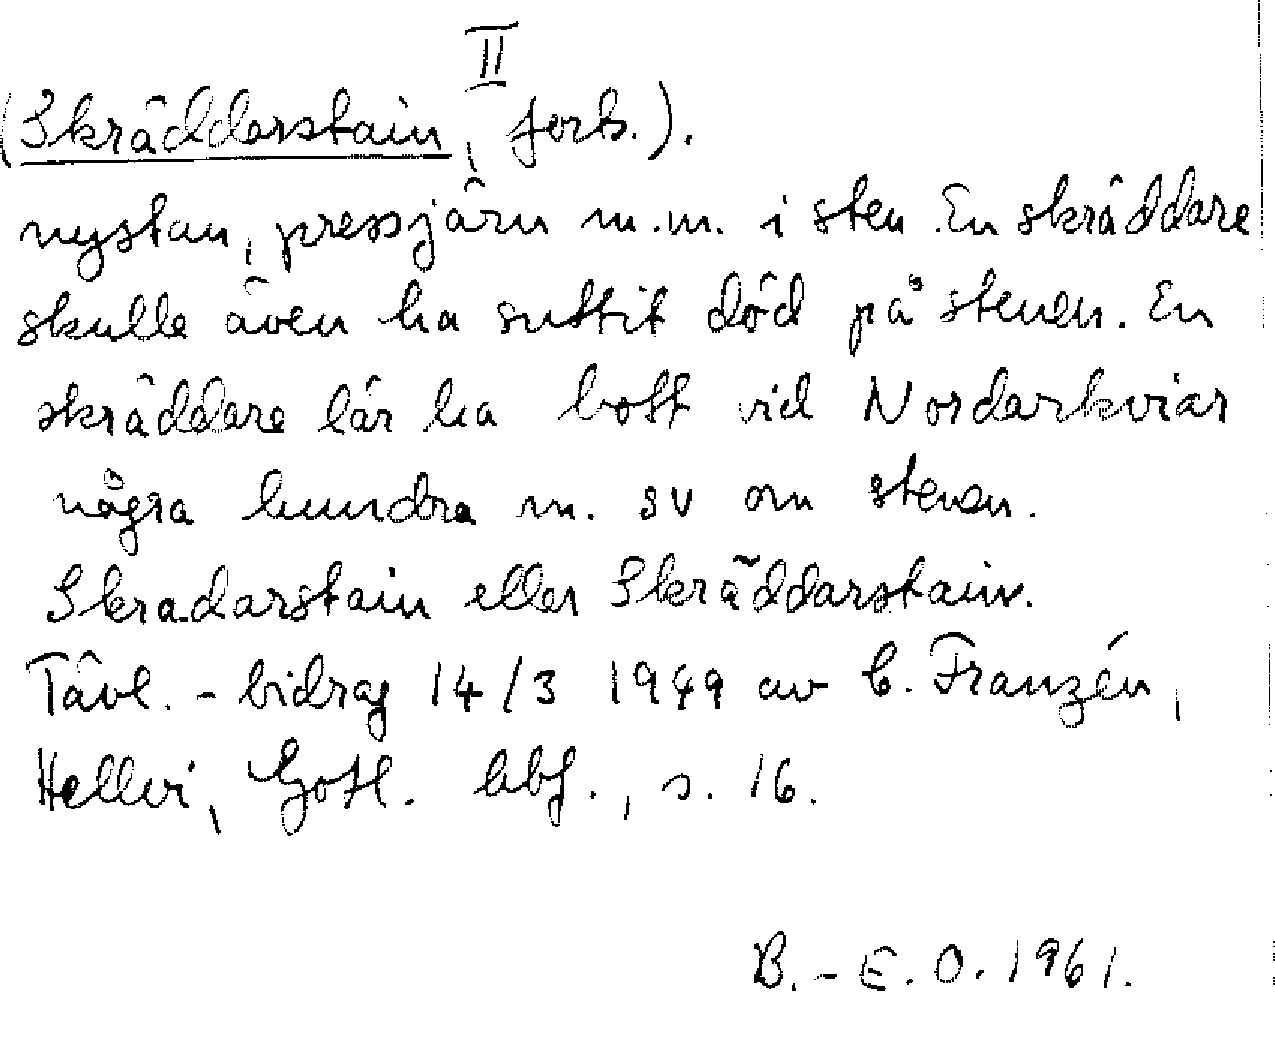 II
(Skräddarstain, forts.).
nystan, pressjärn m.m. i sten. En skräddare
skulle även ha suttit död på stenen. En
skräddare lär ha bott vid Nordarkviar
några hundra m. SV om stenen.
Skradarstain eller Skräddarstain.
Tävl.-bidrag 14/3 1949 av C. Franzén,
Hellvi, Gotl. hbf., s. 16.
B.-E. O. 1961.